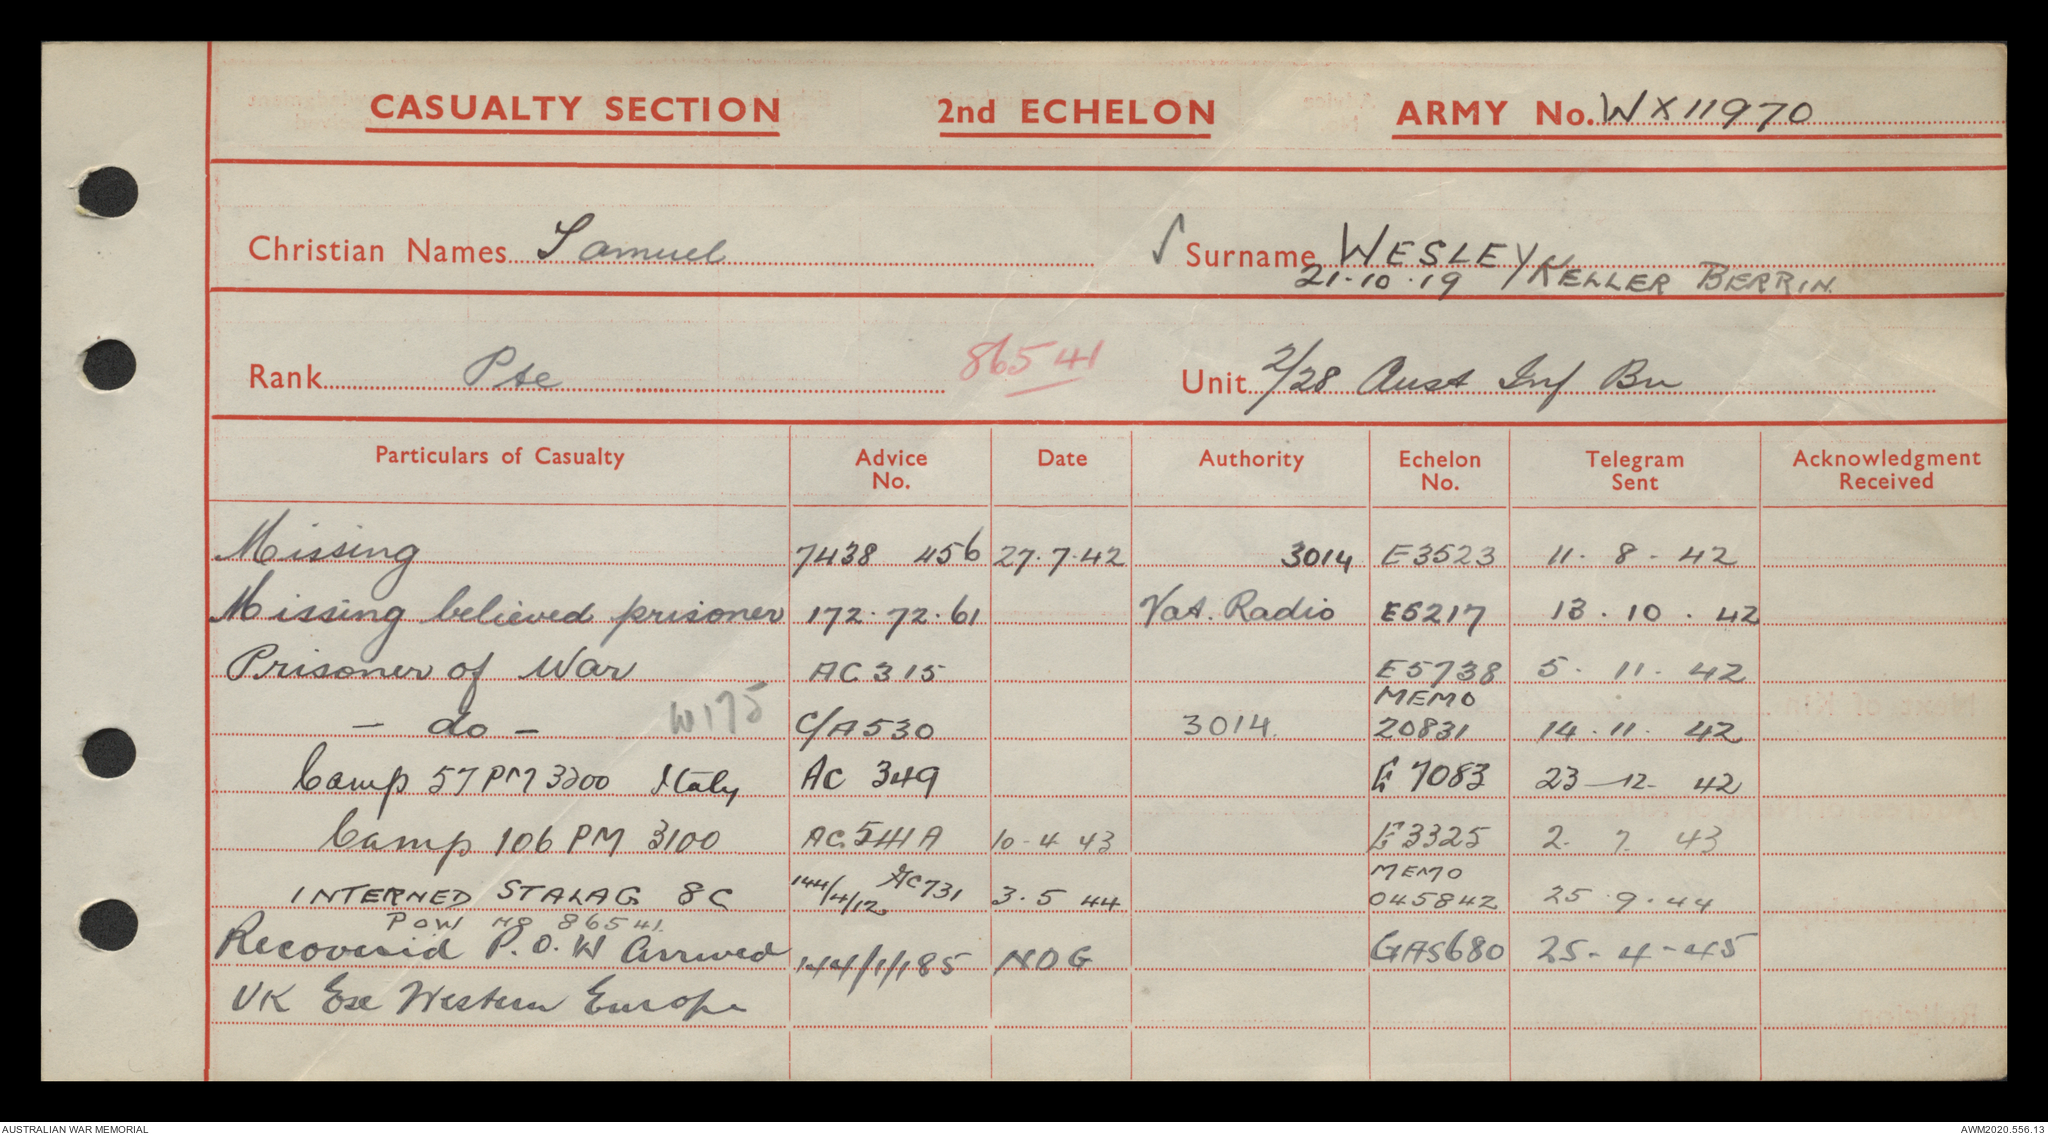 CASUALTY SECTION 2nd ECHELON ARMY No. WX11970
Christian Names Samuel √ Surname WESLEY
21·10·19 KELLER BERRIN.
Rank Pte 86541 Unit 2/28 Aust Inf Bn
Particulars of Casualty Advice No. Date Authority Echelon No. Telegram Sent Acknowledgment Received
Missing 7438 456 27·7·42 3014 E3523 11·8-42
Missing believed prisoner 172·72·61 Vat. Radio E5217 13·10·42
Prisoner of War AC315 E5738 5·11·42
W175 MEMO
- do - C/A530 3014. 20831 14·11·42
Camp 57 PM 3200 Italy AC 349 E7083 23-12-42
Camp 106 PM 3100 AC541A 10-4 43 E3325 2·7·43
MEMO
INTERNED STALAG 8C 144/4/12 AC731 3·5 44 045842 25·9·44
POW No 86541.
Recovered P.O.W arrived 144/1/185 NDG GAS680 25-4-45
UK Exe Western Europe
AUSTRALIAN WAR MEMORIAL AWM2020.556.13